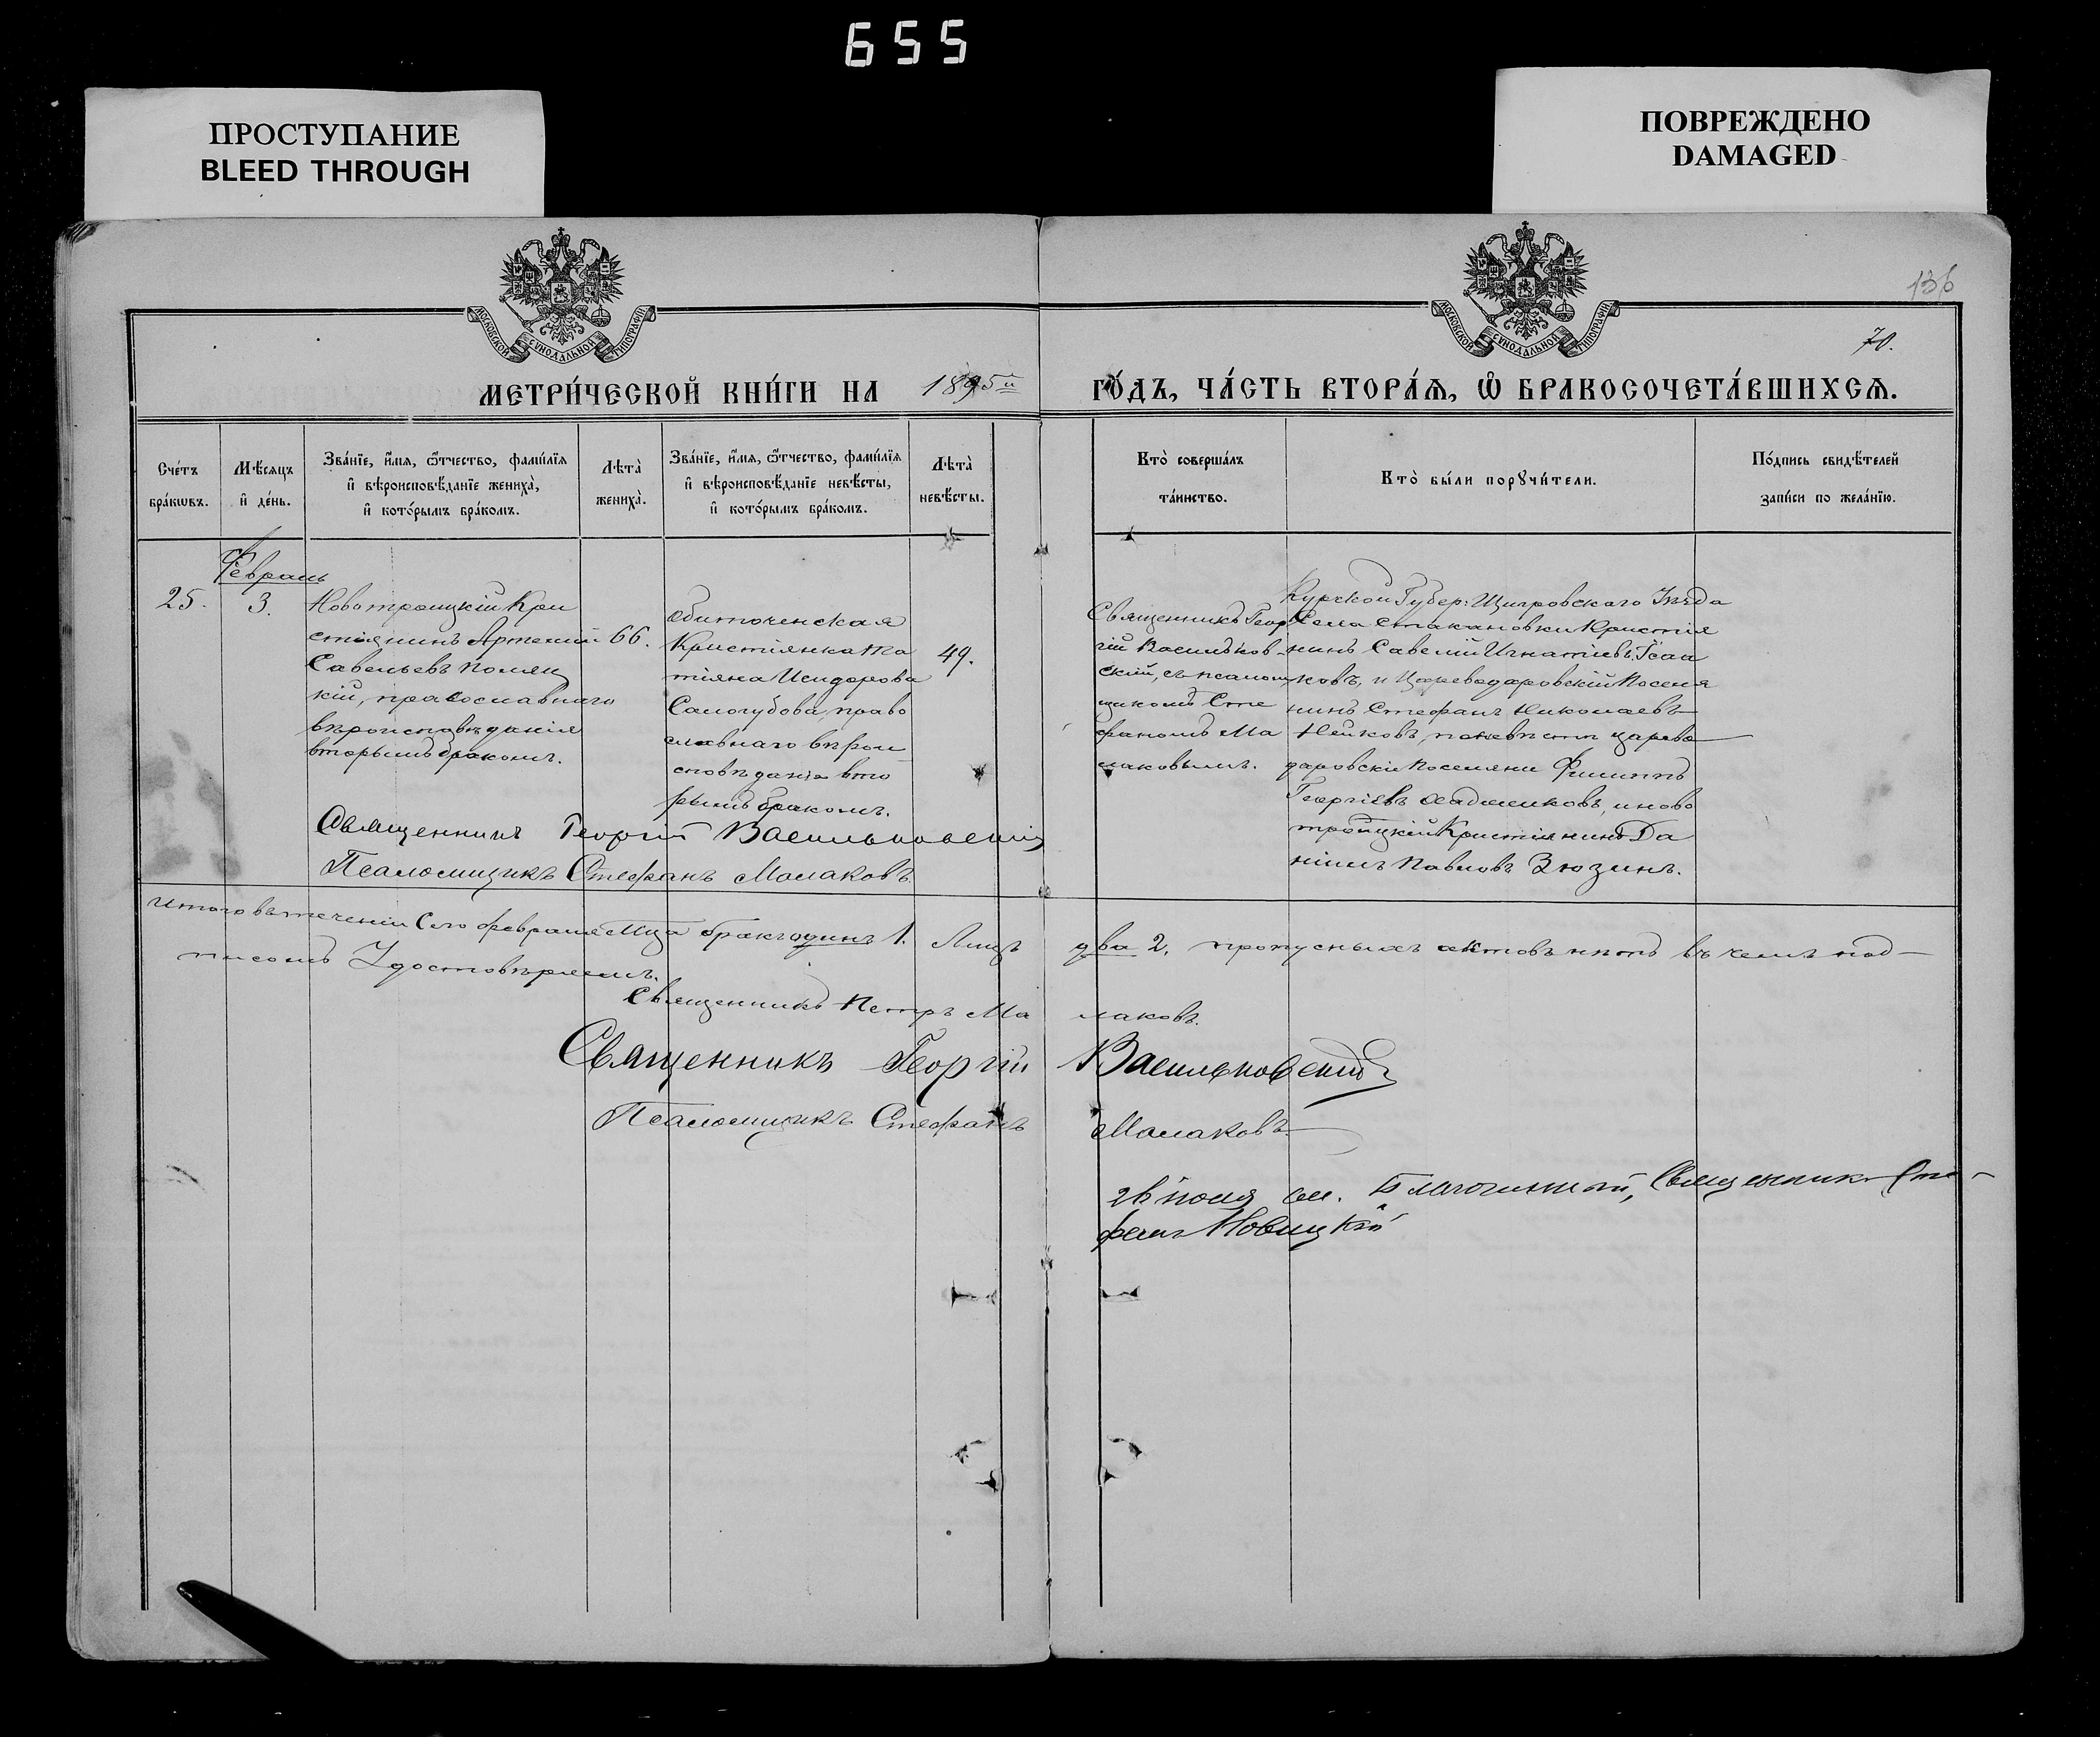 655
ПРОСТУПАНИЕ
BLEED THROUGH
ПОВРЕЖДЕНО
DAMAGED
МОСКОВСКОЙ СѴНОДАЛЬНОЙ ТИПОГРАФІИ
МОСКОВСКОЙ СѴНОДАЛЬНОЙ ТИПОГРАФІИ
136
70.
МЕТРИ́ЧЕСКОЙ КНИ́ГИ НА 1895й ГО́ДЪ, ЧА́СТЬ ВТОРА́Ѧ, Ѽ БРАКОСОЧЕТА́ВШИХСѦ.
Сче́тъ
бра́кѡвъ.
Мѣ́сяцъ
и҆ де́нь.
Зва́нїе, и҆́мя, ѻ҆́тчество, фамѝлїя
и҆ вѣроисповѣ́данїе жениха̀,
и҆ кото́рымъ бра́комъ.
Лѣта̀
жениха̀.
Зва́нїе, и҆́мя, ѻ҆́тчество, фамѝлїя
и҆ вѣроисповѣ́данїе невѣ́сты,
и҆ кото́рымъ бра́комъ.
Лѣта̀
невѣ́сты.
Кто̀ соверша́лъ
та́инство.
Кто̀ бы́ли порꙋчи́тели.
По́дпись свидѣ́телей
за́писи по жела́нїю.
Февраль
25.
3.
Новотроицкій Кри
стіянинъ Артемій
Савельевъ Полян
кій, православнаго
вѣроисповѣданія
вторымъ бракомъ.
66.
Обиточенская
Кристіянка Та
тіяна Исидорова
Самогубова, право
славнаго вѣрои
сповѣданія вто
рымъ бракомъ.
49.
Священникъ Геор
гій Васильков-
скій, съ псалом
щикомъ Сте
фаномъ Ма
лаковымъ.
Курской Губер: Щигровскаго Уѣзда
Села Стакановки Кристія
нинъ Савелій Игнатіевъ Исаи
ковъ, и Цареводаровскій Поселя
нинъ Стефанъ Николаевъ
Нейковъ, по невѣсти царево
даровскіе Поселяни Филиппъ
Георгіевъ Хаджиковъ, и ново
троицкій Кристіянинъ Да
ніилъ Павловъ Зюзинъ.
Священникъ Георгій Васильковскій
Псаломщикъ Стефанъ Малаковъ
Итого въ теченіи Сего февраля Мца бракъ одинъ 1. Лицъ два 2, пропускныхъ актовъ нѣтъ въ чемъ под-
писомъ Удостовѣряемъ.
Священникъ Петръ Малаковъ.
Священникъ Георгій Васильковскій
Псаломщикъ Стефанъ Малаковъ
Благочинный, Священникъ Сте-
фанъ Новицкій